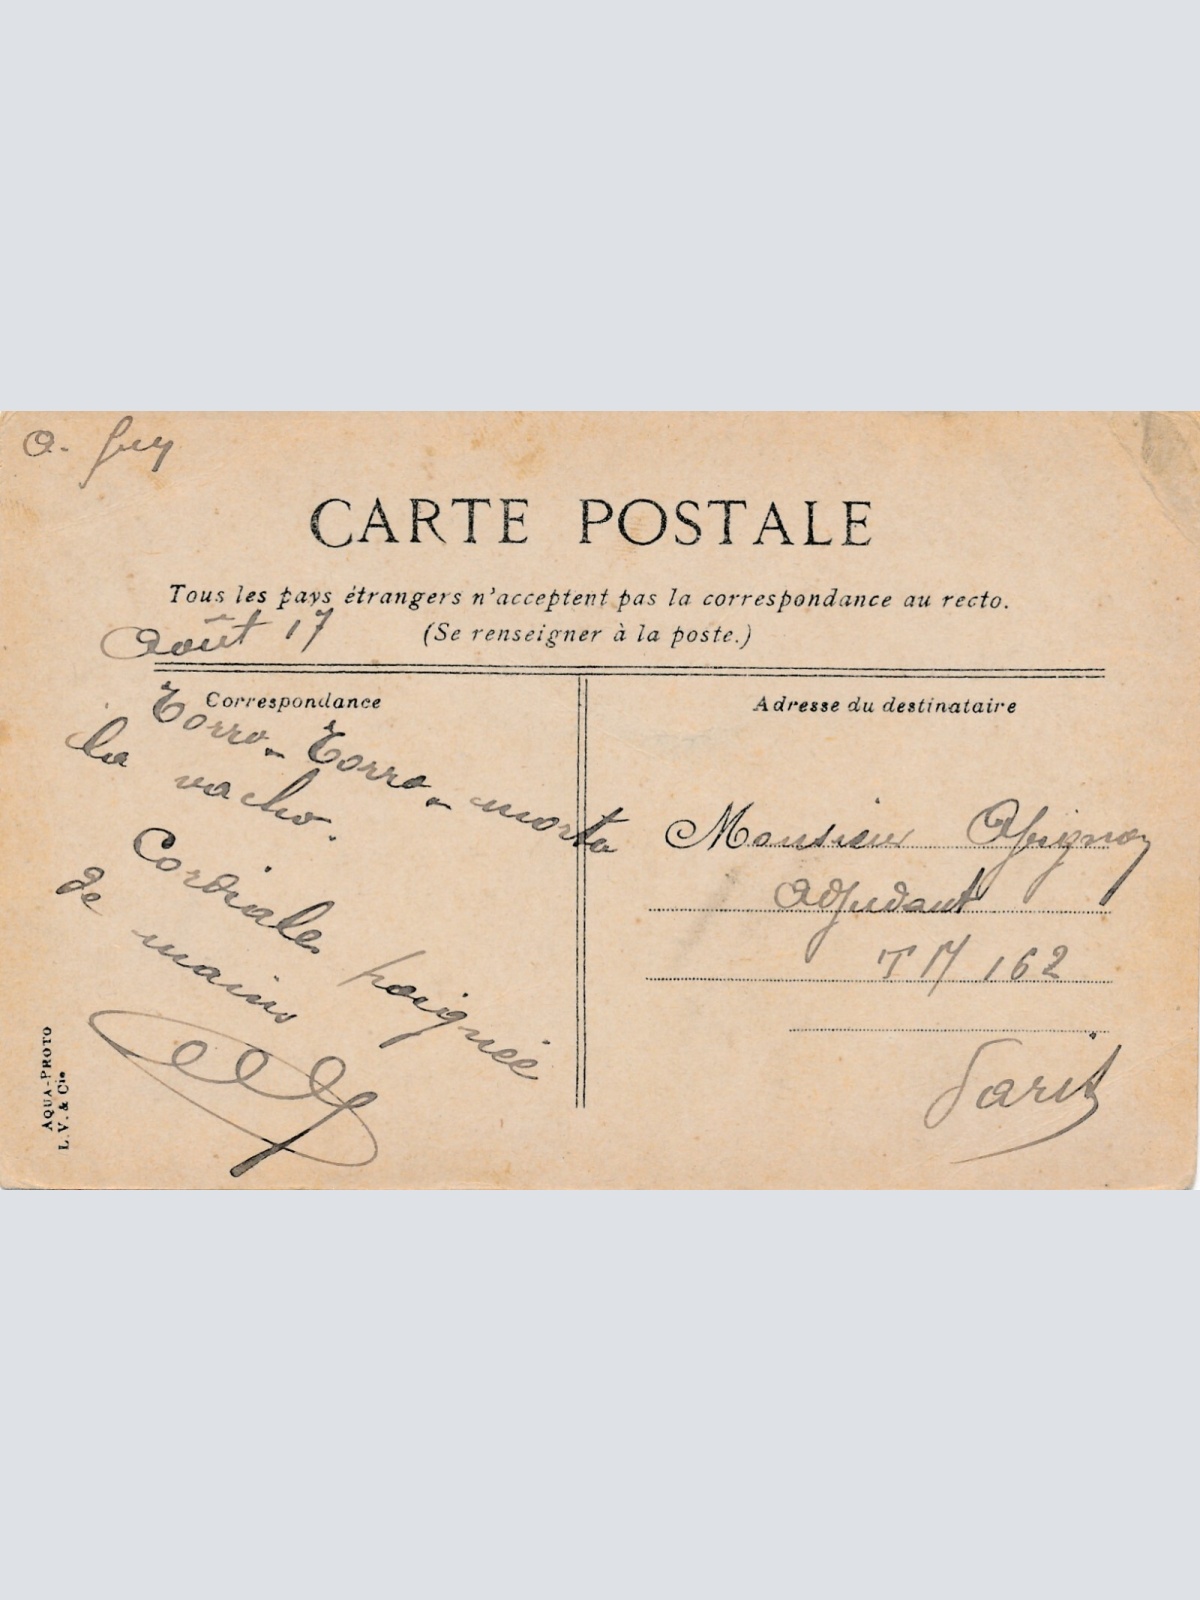 A. Guy
CARTE POSTALE
Tous les pays étrangers n'acceptent pas la correspondance au recto.
(Se renseigner à la poste.)
Août 17
Correspondance
Torro - Torro - morta
la vacho.
Cordiale poignée
de mains
Adresse du destinataire
Monsieur
Adjudant
TM 162
Paris
AQUA-PHOTO
L. V. & Cie